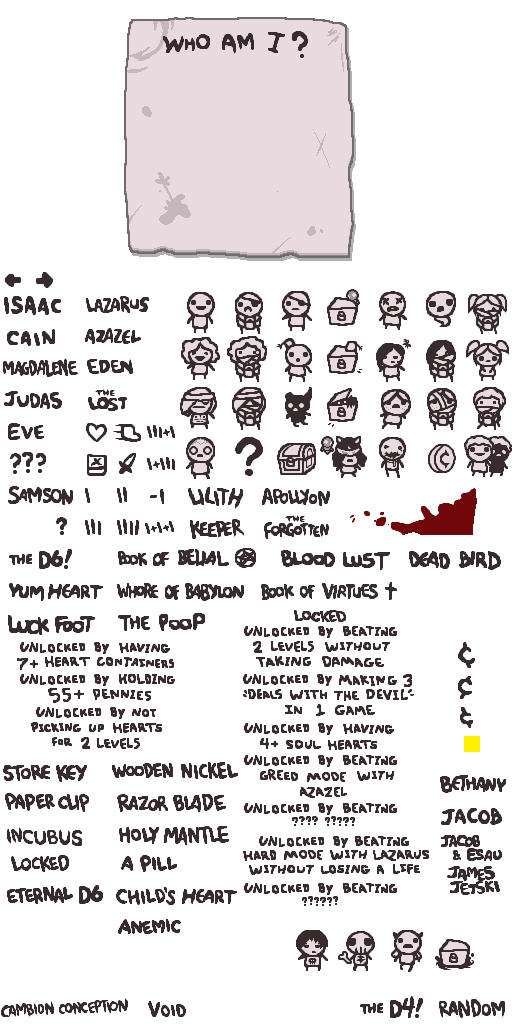 WHO AM I?
ISAAC LAZARUS
CAIN AZAZEL
MAGDALENE EDEN
JUDAS THE LOST
EVE
???
?
SAMSON LILITH APOLLYON
? KEEPER THE FORGOTTEN
THE D6! BOOK OF BELIAL BLOOD LUST DEAD BIRD
YUM HEART WHORE OF BABYLON BOOK OF VIRTUES
LUCK FOOT THE POOP
UNLOCKED BY HAVING
7+ HEART CONTAINERS
UNLOCKED BY HOLDING
55+ PENNIES
UNLOCKED BY NOT
PICKING UP HEARTS
FOR 2 LEVELS
LOCKED
UNLOCKED BY BEATING
2 LEVELS WITHOUT
TAKING DAMAGE
UNLOCKED BY MAKING 3
"DEALS WITH THE DEVIL"
IN 1 GAME
UNLOCKED BY HAVING
4+ SOUL HEARTS
UNLOCKED BY BEATING
GREED MODE WITH
AZAZEL
UNLOCKED BY BEATING
???? ?????
UNLOCKED BY BEATING
HARD MODE WITH LAZARUS
WITHOUT LOSING A LIFE
UNLOCKED BY BEATING
??????
¢
¢
¢
STORE KEY WOODEN NICKEL
PAPER CLIP RAZOR BLADE
INCUBUS HOLY MANTLE
LOCKED A PILL
ETERNAL D6 CHILD'S HEART
ANEMIC
BETHANY
JACOB
JACOB
& ESAU
JAMES
JETSKI
CAMBION CONCEPTION VOID THE D4! RANDOM